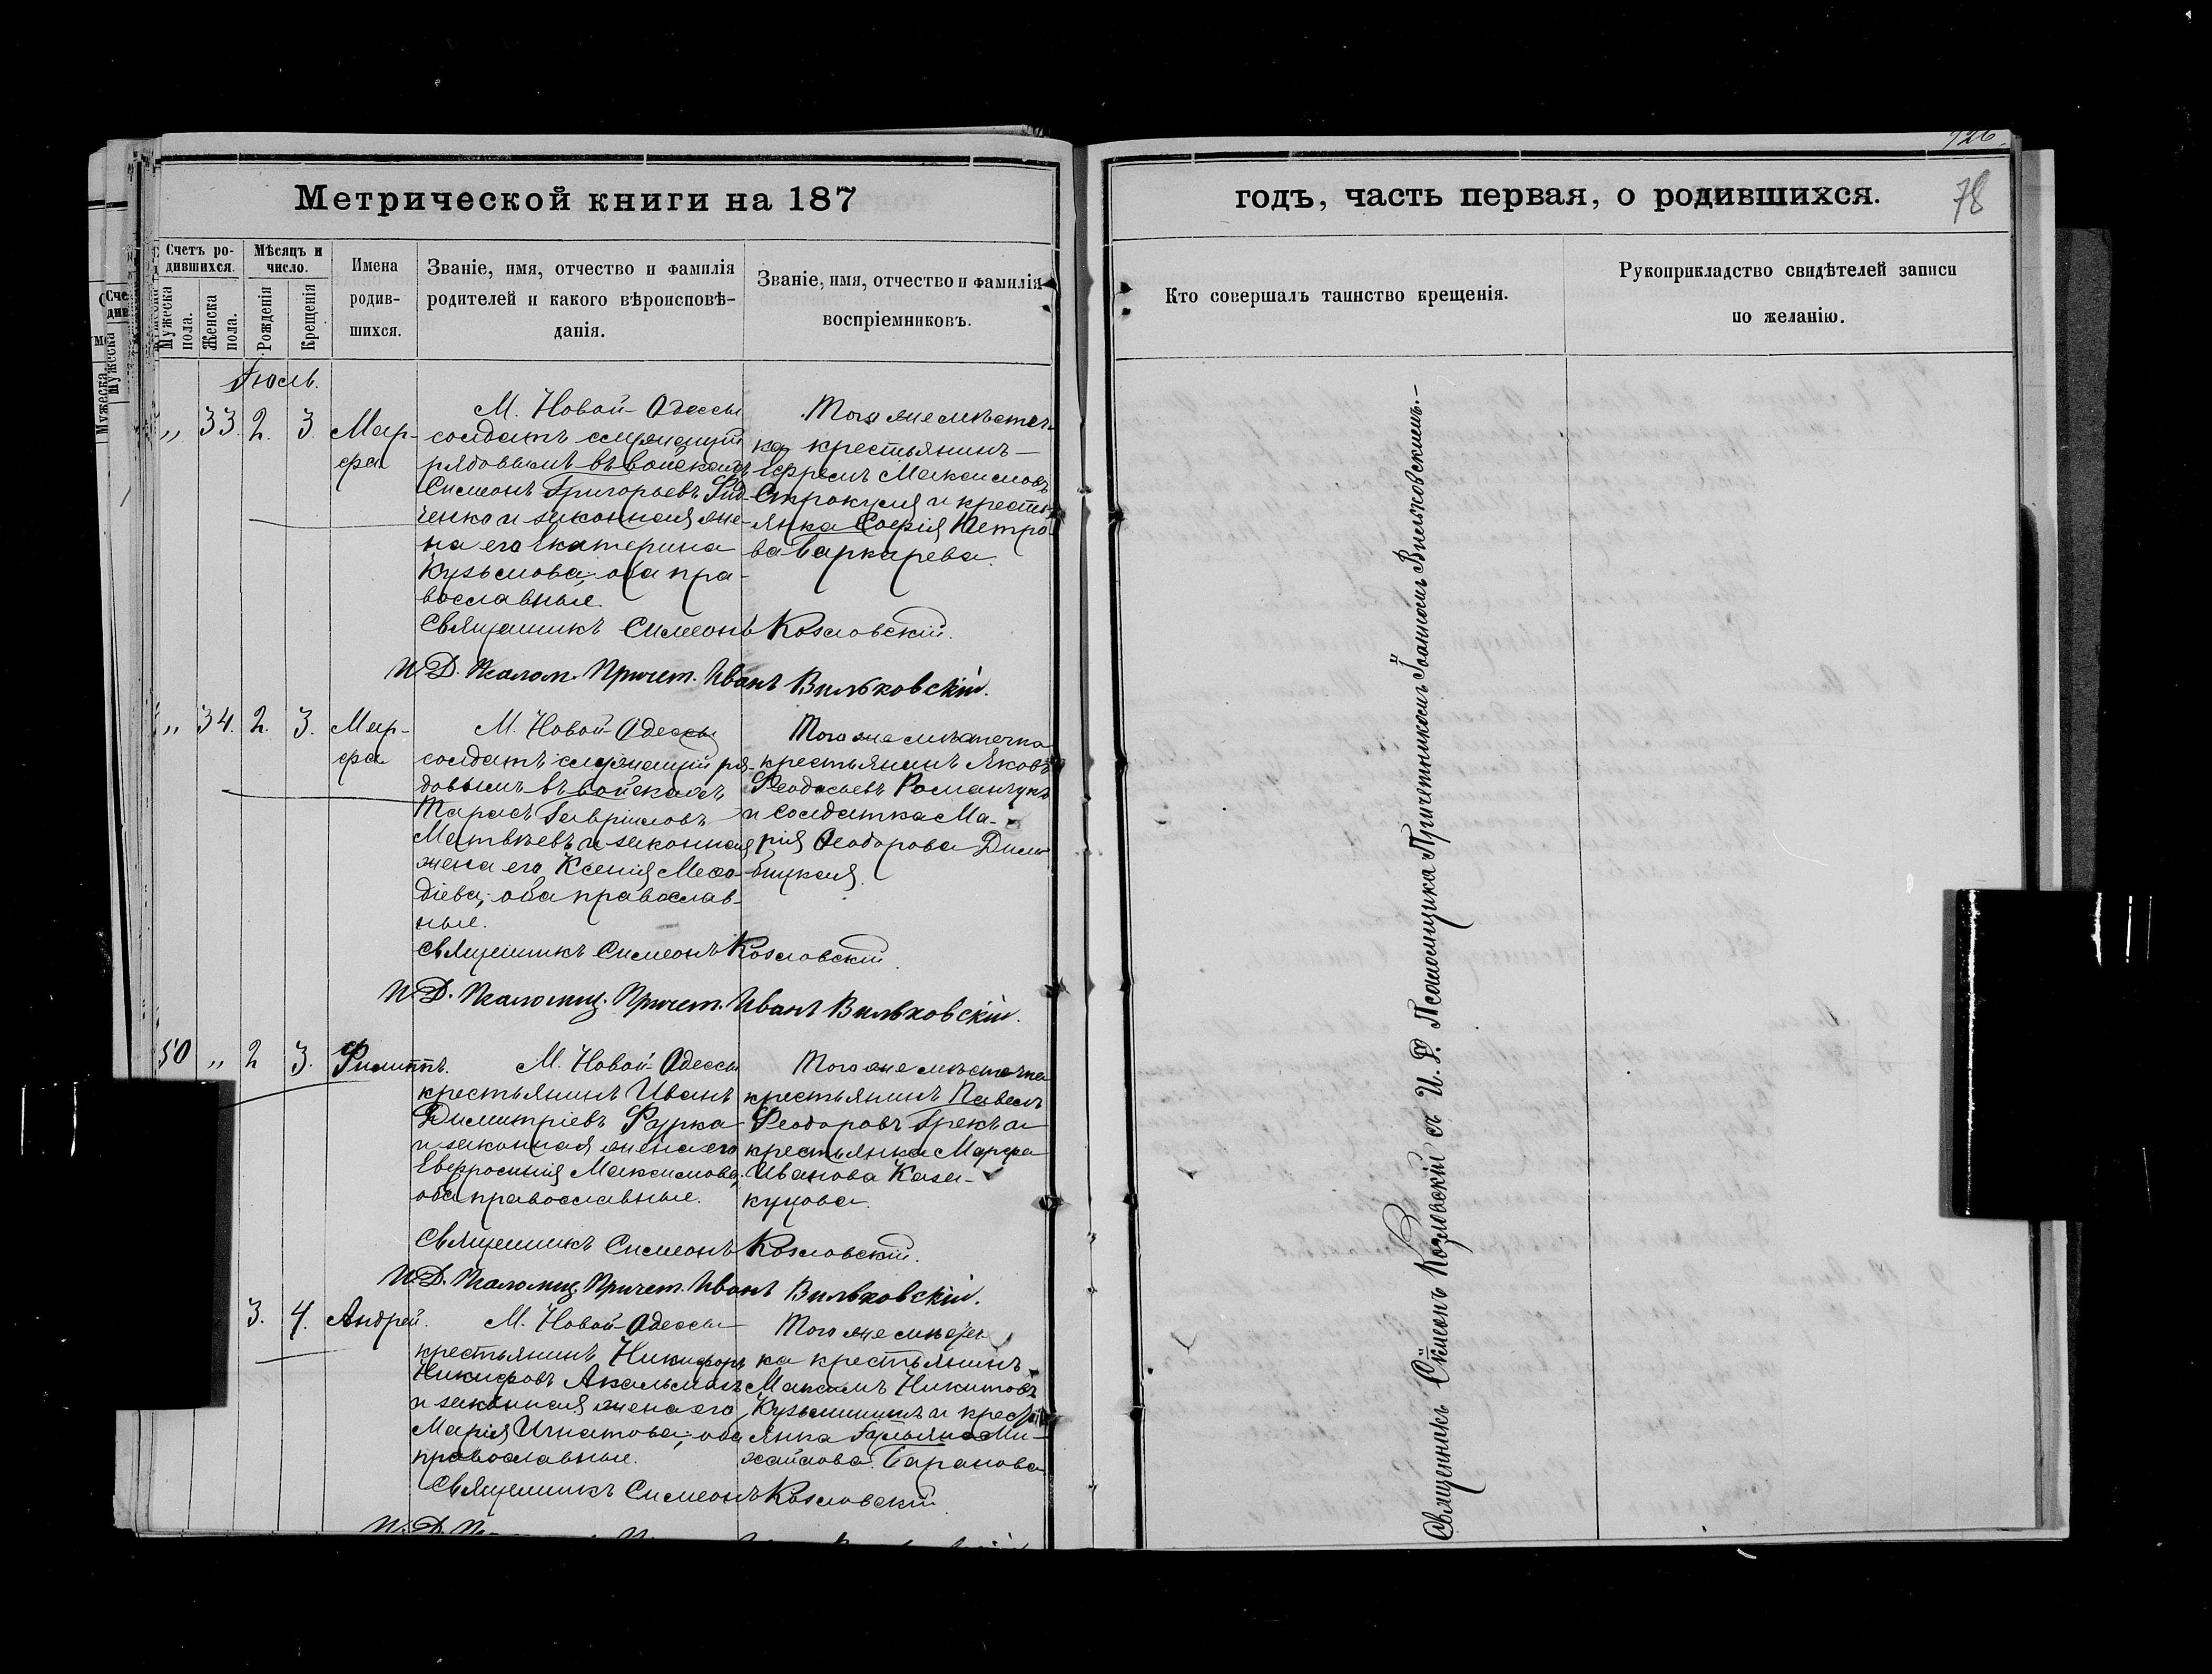 926.
78
Метрической книги на 187
годъ, часть первая, о родившихся.
Счетъ родившихся.
Мужеска пола.
Женска пола.
Мѣсяцъ и число.
Рожденія
Крещенія
Имена родившихся.
Званіе, имя, отчество и фамилія
родителей и какого вѣроисповѣ-
данія.
Званіе, имя, отчество и фамилія
воспріемниковъ.
Кто совершалъ таинство крещенія.
Рукоприкладство свидѣтелей записи
по желанію.
Іюль.
„ 33. 2. 3. Мар-
фа
М. Новой-Одессы
солдатъ служащій
рядовымъ въ войскахъ
Симеонъ Григорьевъ
ченко и законная же-
на его Екатерина
Кузьмова, оба пра-
вославные.
Того же мѣстеч-
ка крестьянинъ
Ефремъ Максимовъ
Строкуля и крестья-
янка Софія Петро-
ва
Священникъ Симеонъ Козловскій.
И. Д. Псалом. Причет. Иванъ Вильковскій.
„ 34. 2. 3. Мар-
фа
М. Новой-Одессы
солдатъ служащій ря-
довымъ въ войскахъ
Тарасъ Гавриловъ
Матвѣевъ и законная
жена его Ксенія Мефо-
діева; оба православ-
ные.
Того же мѣстечка
крестьянинъ Яковъ
Феодосьевъ Романчукъ
и солдатка Ма-
рія Феодорова
Священникъ Симеонъ Козловскій.
И. Д. Псаломщ. Причет. Иванъ Вильковскій.
50 „ 2 3. Филиппъ.
М. Новой-Одессы
крестьянинъ Иванъ
Димитріевъ Фурка
и законная жена его
Евфросинія Максимова,
оба православные.
Того же мѣстечка
крестьянинъ Павелъ
Феодоровъ Грекъ и
крестьянка Марфа
Иванова Каза-
куцова.
Священникъ Симеонъ Козловскій.
И. Д. Псаломщ. Причет. Иванъ Вильковскій.
3. 4. Андрей.
М. Новой-Одессы
крестьянинъ Никифоръ
Никифоровъ
и законная жена его
Марія Игнатова; оба
православные.
Того же мѣстеч-
ка крестьянинъ
Максимъ Никитовъ
Кузьмининъ и кресть-
янка Татьяна Ми-
хайлова Баранова
Священникъ Симеонъ Козловскій
Священникъ Симеонъ Козловскій съ И. Д. Псаломщика Причетникомъ Іоанномъ Вильковскимъ.—